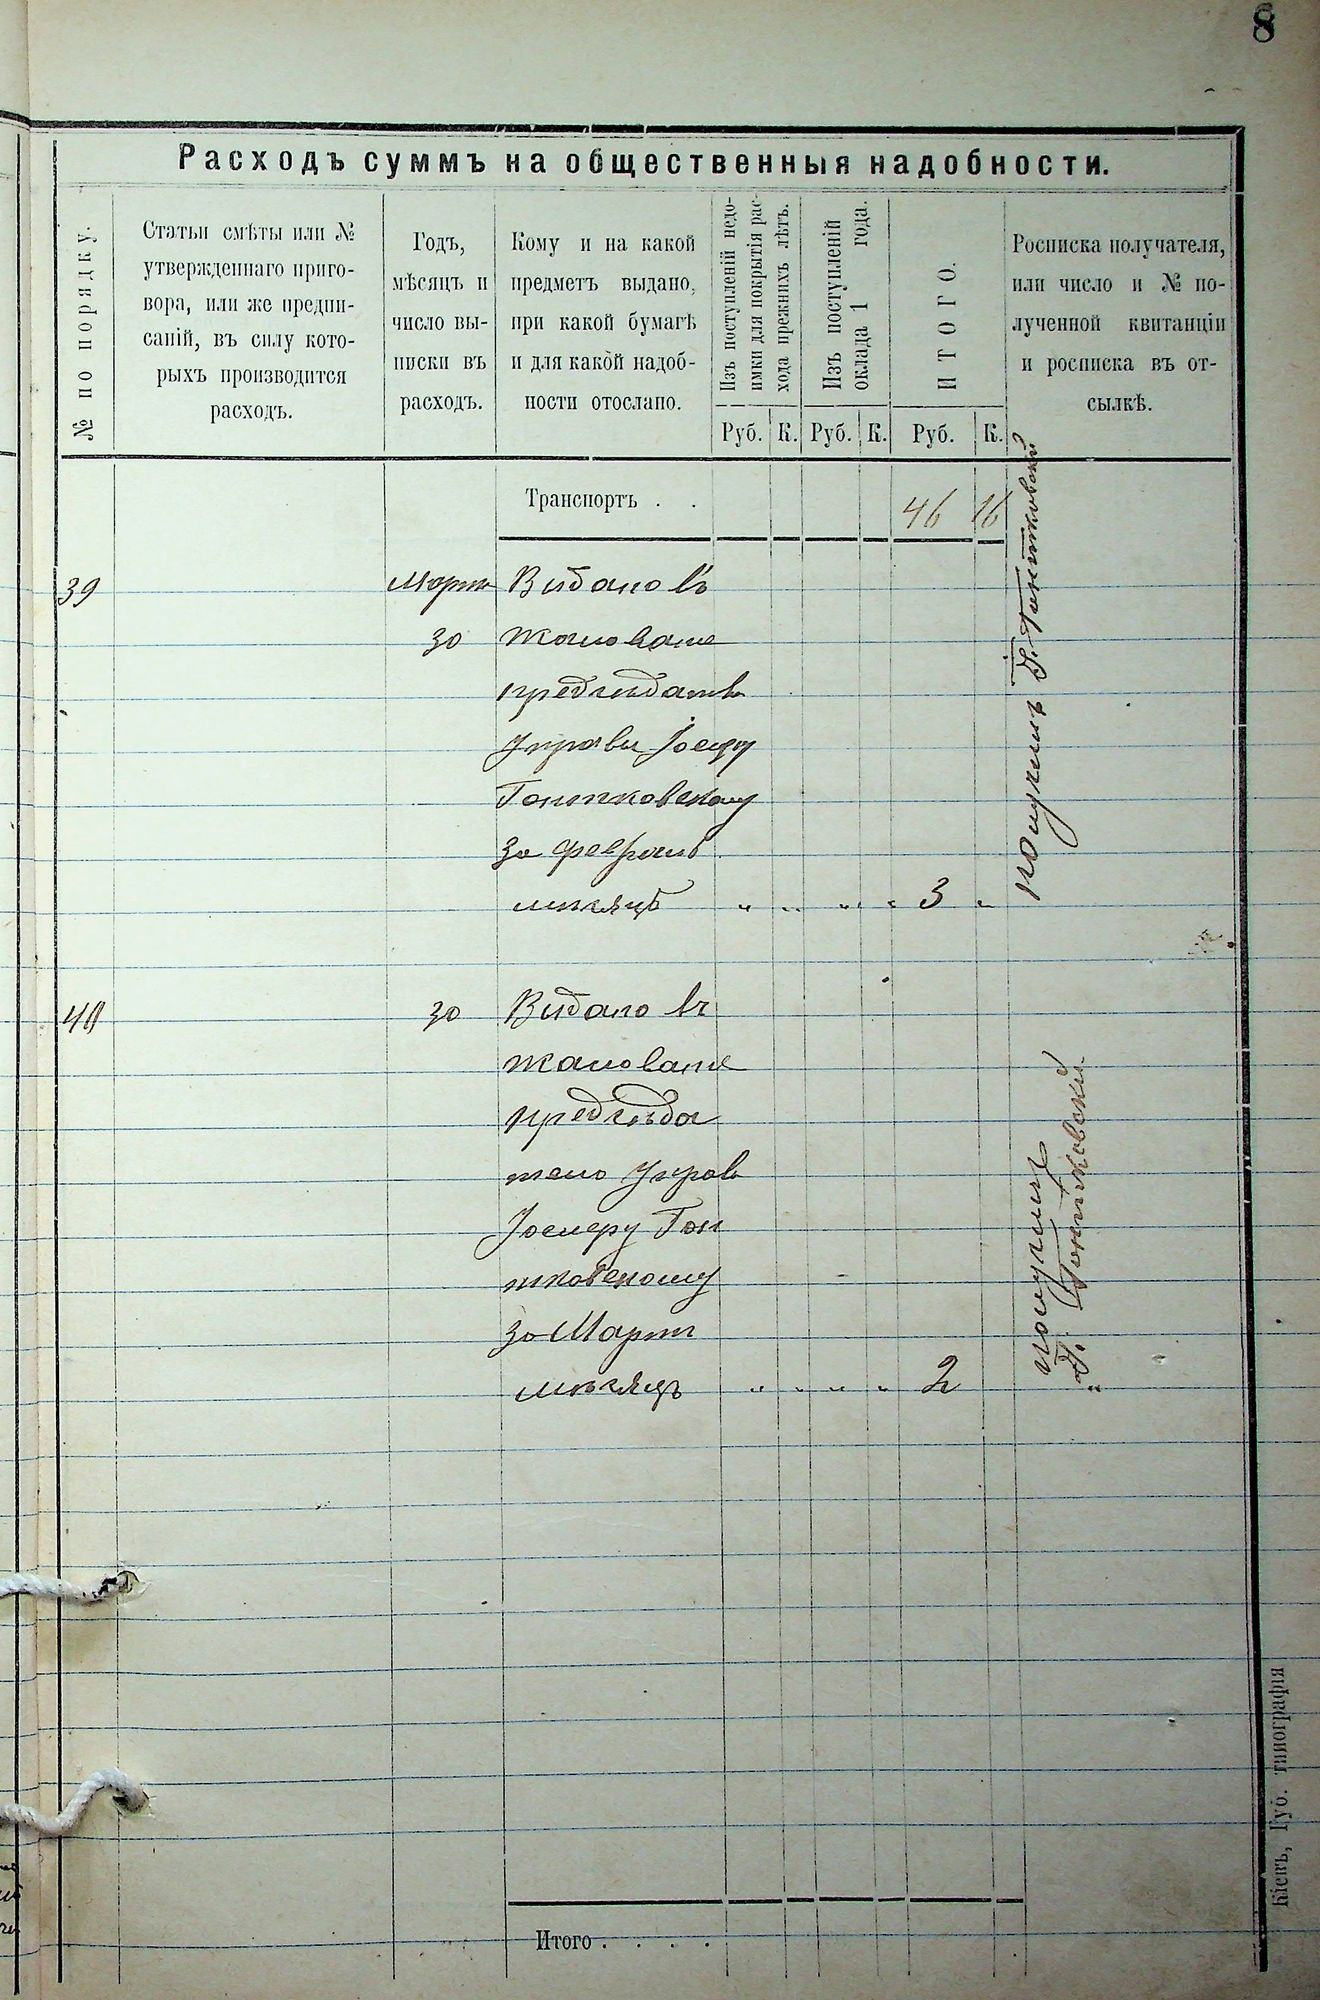 8
Расходъ суммъ на общественныя надобности.
№ по порядку.
Статьи смѣты или №
утвержденнаго приго-
вора, или же предпи-
саній, въ силу кото-
рыхъ производится
расходъ.
Годъ,
мѣсяцъ и
число вы-
писки въ
расходъ.
Кому и на какой
предметъ выдано,
при какой бумагѣ
и для какой надоб-
ности отослано.
Изъ поступленій недо-
имки для покрытія рас-
хода прежнихъ лѣтъ.
Изъ поступленій
оклада 1 года.
ИТОГО.
Росписка получателя,
или число и № по-
лученной квитанціи
и росписка въ от-
сылкѣ.
Руб. К. Руб. К. Руб. К.
Транспортъ . . 46 16
39 Мартъ Видано въ
30 жалованіе
предсѣдатв
Управи Іосифу
Гонтковскому
за февраль
мѣсяцъ „ „ „ „ 3 „
получилъ І. Гонтковскій
40 30 Видано въ
жалованіе
предсѣда
телю Управ
Іосифу Гон
тковскому
за Мартъ
мѣсяцъ „ „ „ „ 2 „
получилъ
І. Гонтковскій
Итого . . . .
Кіевъ, Губ. типографія